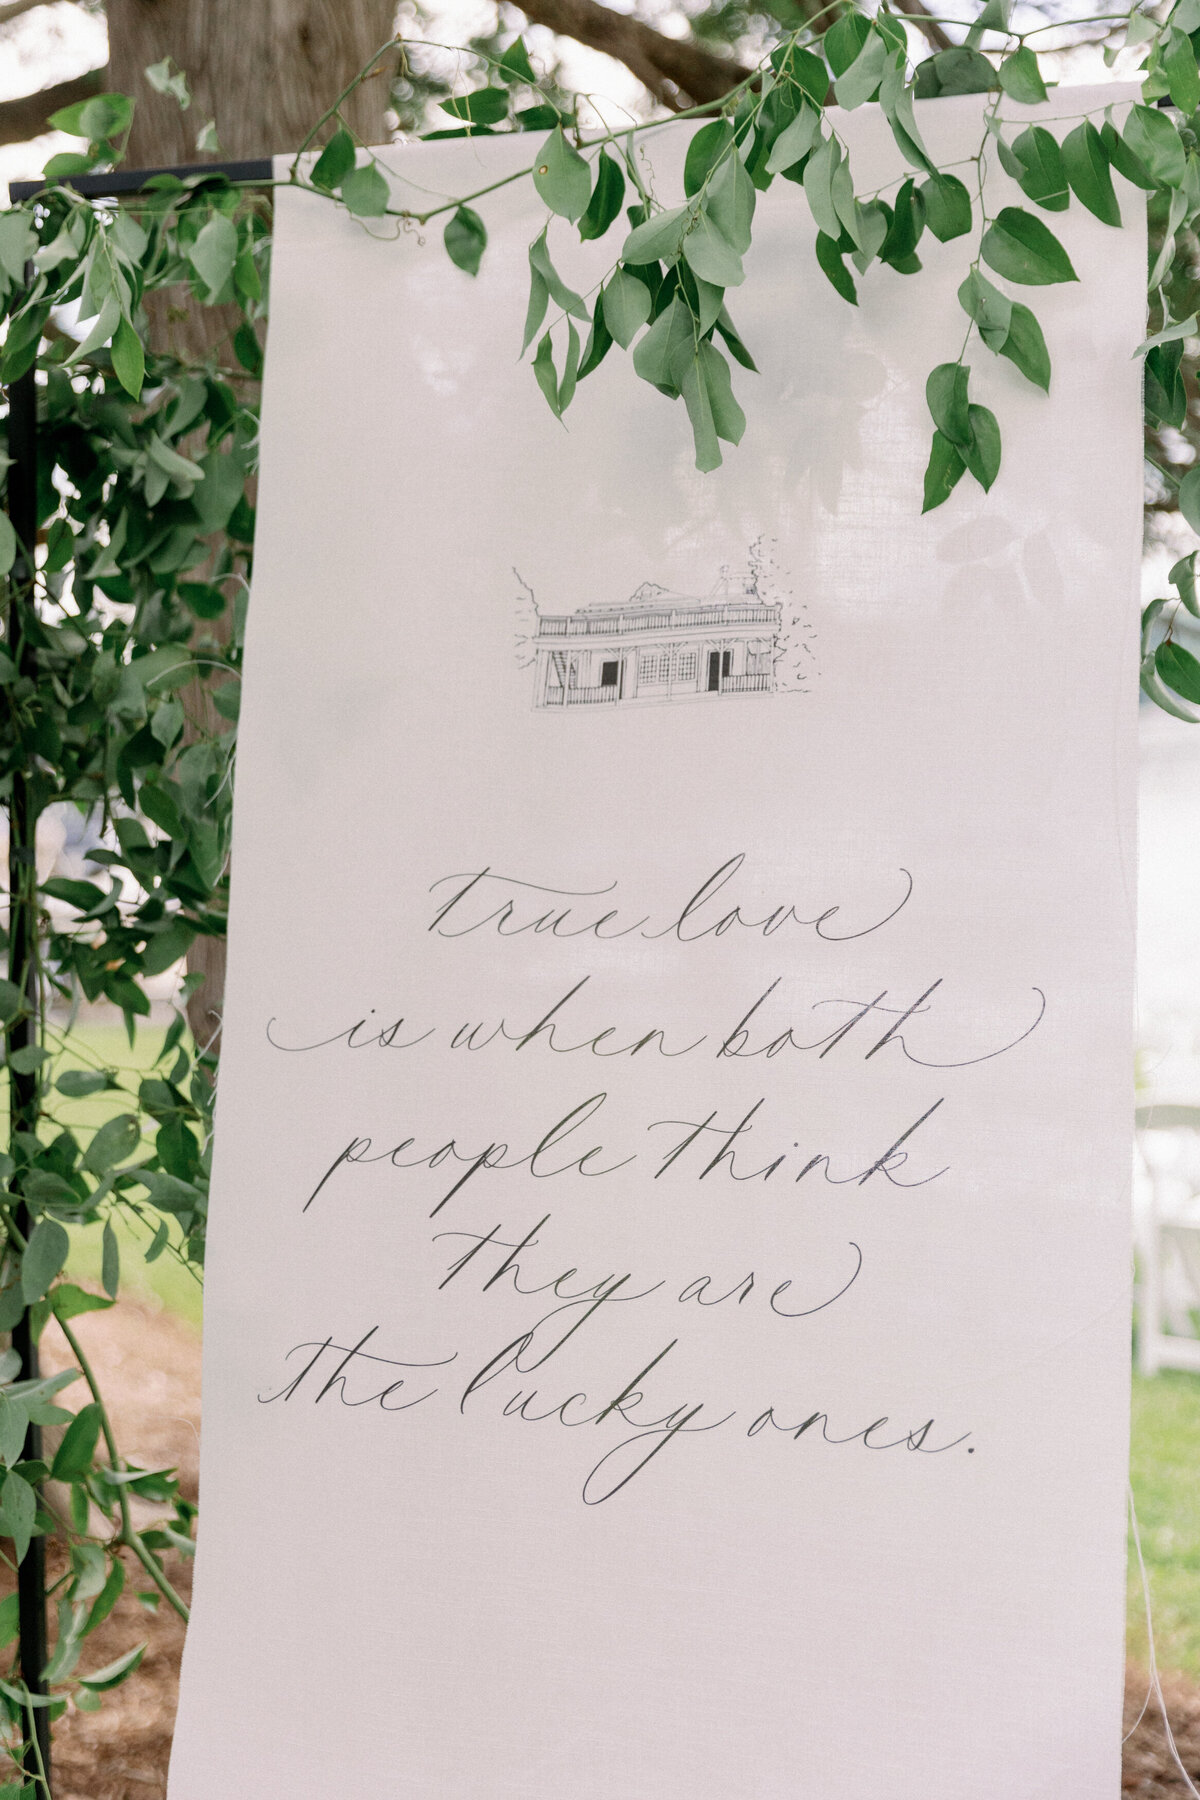 true love
is when both
people think
they are
the lucky ones.